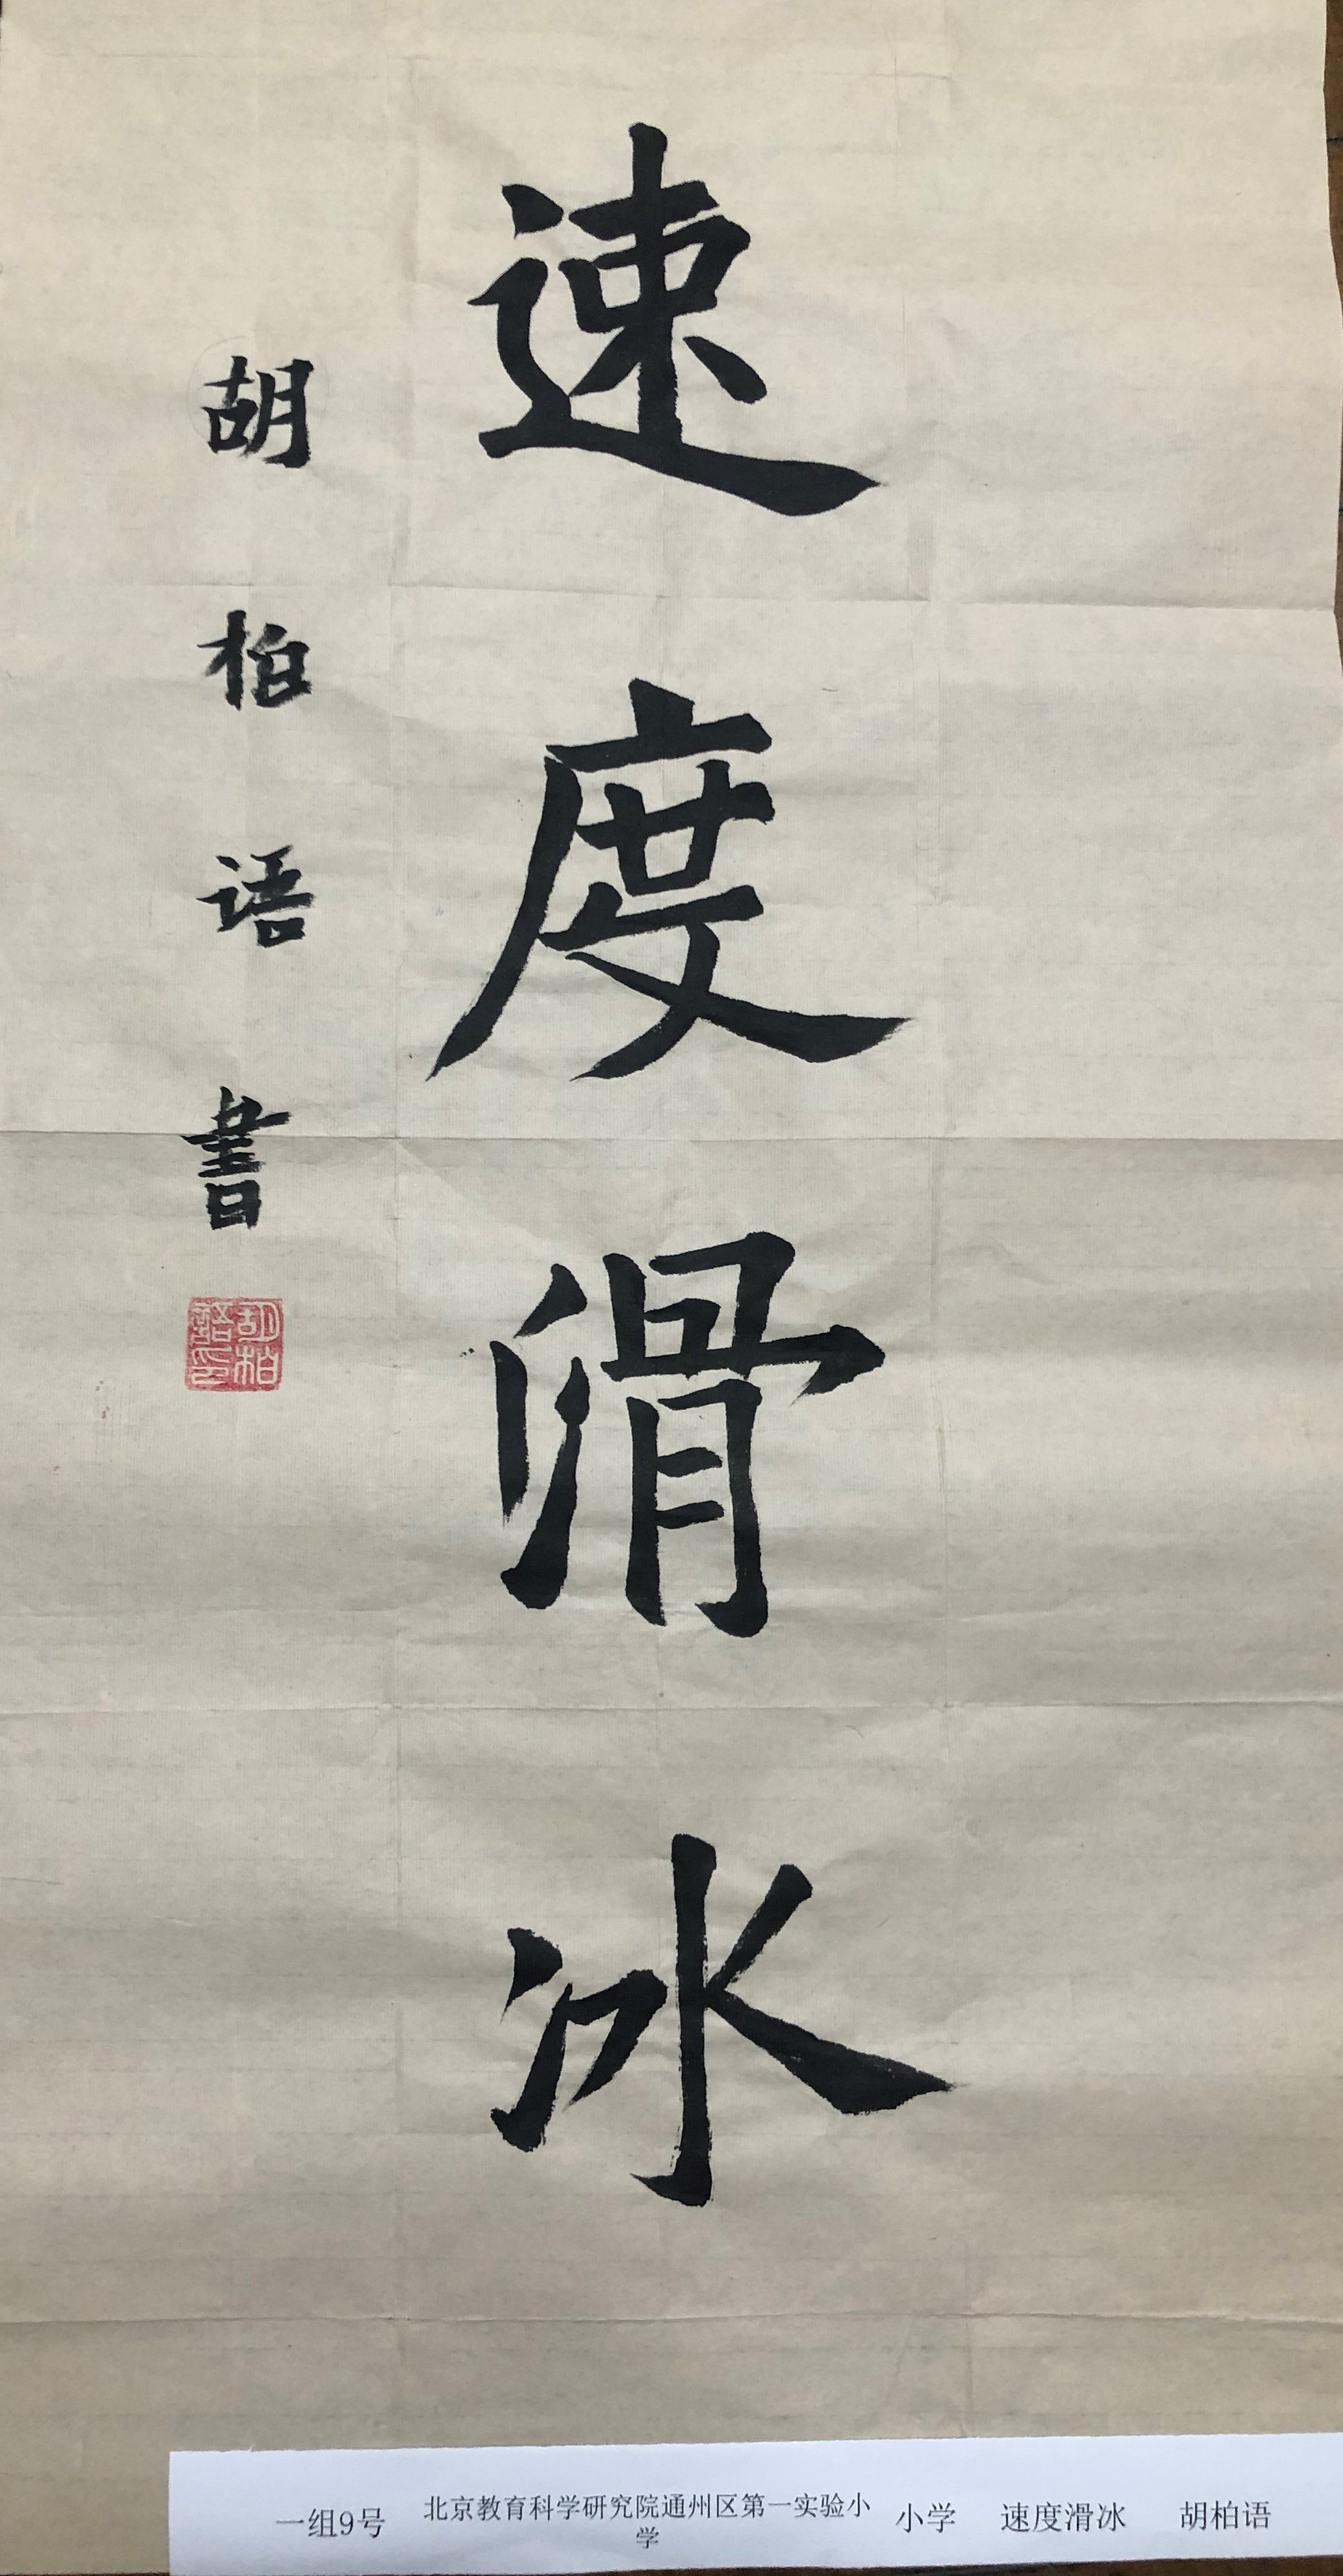 速度滑冰
胡柏语書
胡柏語印
一组9号 北京教育科学研究院通州区第一实验小学 小学 速度滑冰 胡柏语